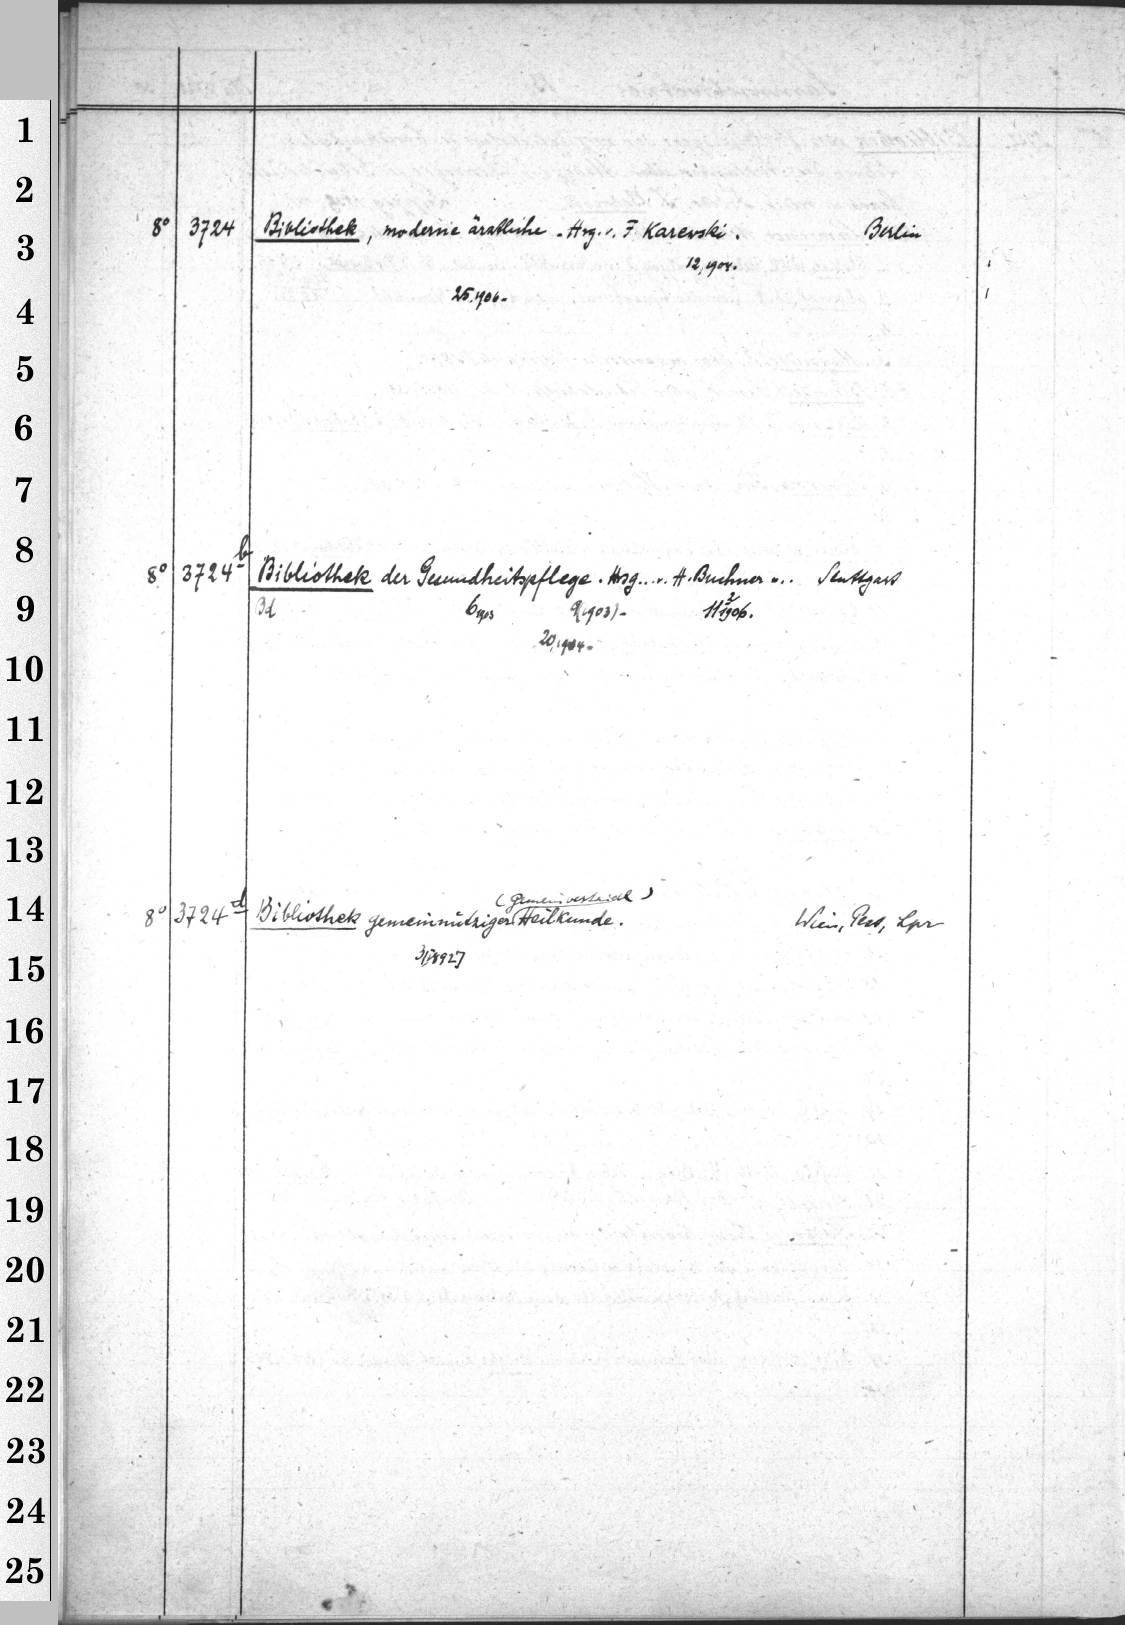 1
2
8° 3724 Bibliothek, moderne ärztliche. Hrg. v. F Karewski. Berlin
3
12,1904.
4
25.1906.
5
6
7
8
8° 3724 b Bibliothek der Gesundheitspflege. Hrsg... v. H. Buchner u.. Stuttgart
9
Bd 6 1903 9(1903)- 11 2 1906.
10
20,1904.
11
12
13
14
(gemeinverständl)
8° 3724 d Bibliothek gemeinnütziger Heilkunde. Wien, Pest, Lpz
15
3[1892]
16
17
18
19
20
21
22
23
24
25